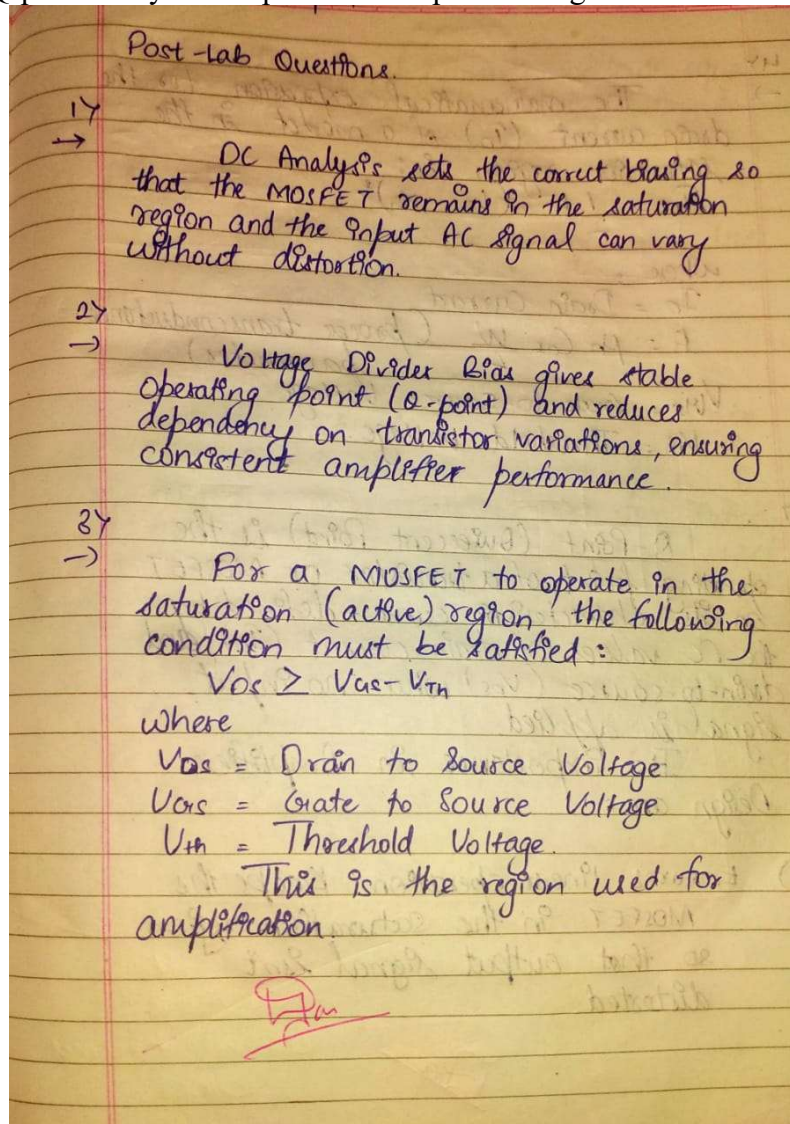 Post-Lab Questions.
1)
→
DC Analysis sets the correct biasing so
that the MOSFET remains in the saturation
region and the input AC signal can vary
without distortion.
2)
→
Voltage Divider Bias gives stable
operating point (Q-point) and reduces
dependency on transistor variations, ensuring
consistent amplifier performance.
3)
→
For a MOSFET to operate in the
saturation (active) region, the following
condition must be satisfied :
VDS ≥ VGS - VTh
where
VDS = Drain to Source Voltage
VGS = Gate to Source Voltage
Vth = Threshold Voltage.
This is the region used for
amplification.